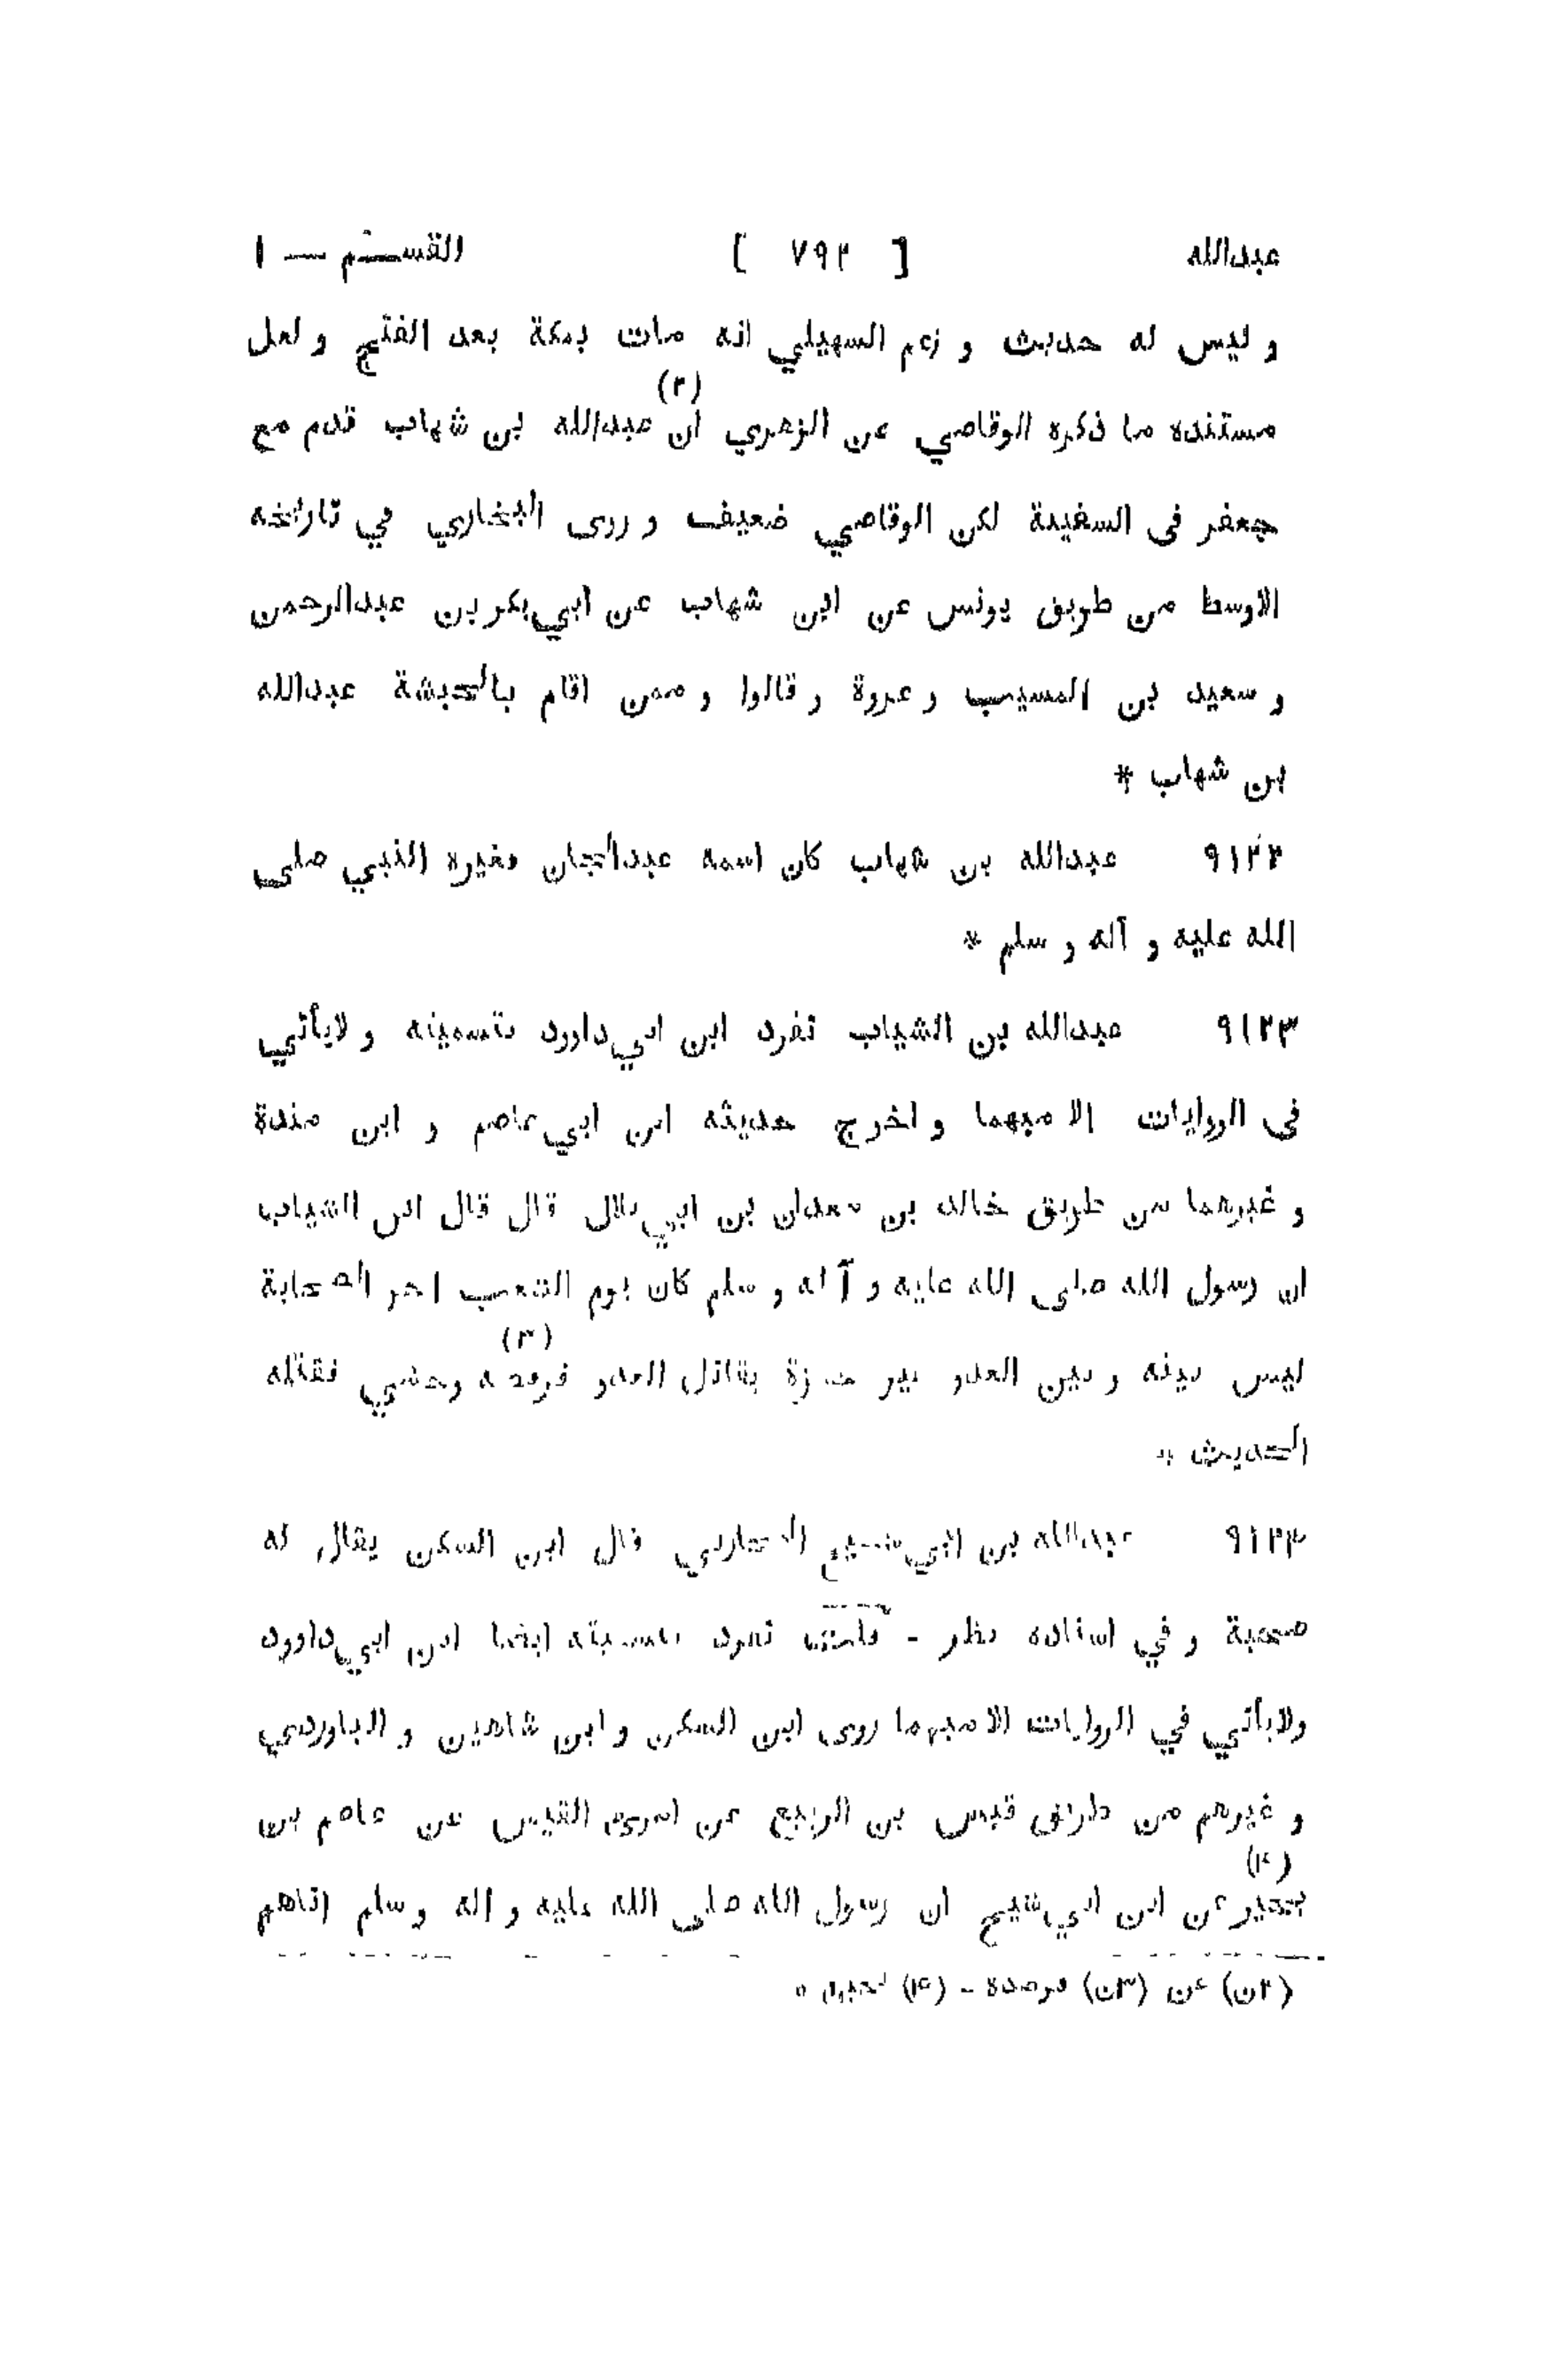 عبدالله [ ٧٩٢ ] القسم — ١
و ليس له حديث و زعم السهيلي انه مات بمكة بعد الفتح و لعل
مستنده ما ذكره الوقاصي عن الزهري ان (٢) عبدالله بن شهاب قدم مع
جعفر فى السفينة لكن الوقاصي ضعيف و روى البخاري في تاريخه
الاوسط من طريق يونس عن ابن شهاب عن ابي بكر بن عبدالرحمن
و سعيد بن المسيب و عروة و قالوا و ممن اقام بالحبشة عبدالله
بن شهاب *
٩١٢٢ عبدالله بن شهاب كان اسمه عبدالجان فغيره النبي صلى
الله عليه و آله و سلم *
٩١٢٣ عبدالله بن الشياب تفرد ابن ابي داوود بتسميته و لايأتي
فى الروايات الا مبهما و اخرج حديثه ابن ابي عاصم و ابن مندة
و غيرهما من طريق خالد بن معدان بن ابي بلال قال قال ابن الشياب
ان رسول الله صلى الله عليه و آله و سلم كان يوم الشعب اخر الصحابة
ليس بينه و بين العدو غير حمزة يقاتل العدو فرصده (٣) وحشي فقتله
الحديث *
٩١٢٤ عبدالله بن ابي شيخ المحاربي قال ابن السكن يقال له
صحبة و في اسناده نظر - قلت تفرد بتسميته ايضا ابن ابي داوود
ولايأتي في الروايات الا مبهما روى ابن السكن و ابن شاهين و الباوردي
و غيرهم من طريق قيس بن الربيع عن امرىء القيس عن عاصم بن
بحير (٤) عن ابن ابي شيخ ان رسول الله صلى الله عليه و اله و سلم اتاهم
(٢ن) عن (٣ن) فرصده - (٤)